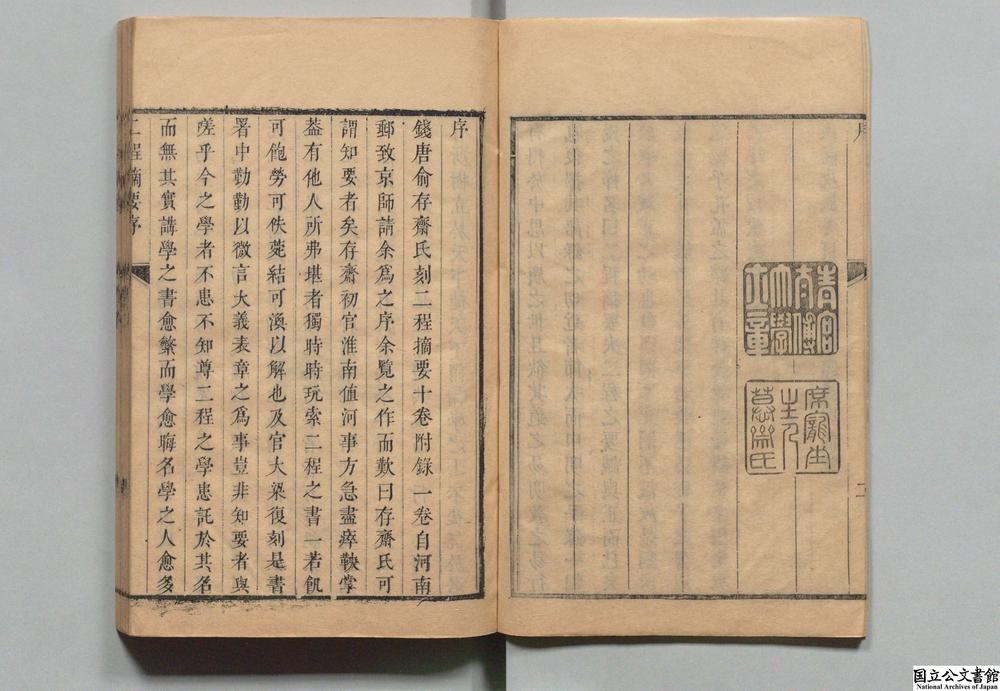 序
錢唐俞存齋氏刻二程摘要十卷附錄一卷自河南
郵致京師請余爲之序余覽之作而歎曰存齋氏可
謂知要者矣存齋初官淮南値河事方急盡瘁鞅掌
葢有他人所弗堪者獨時時玩索二程之書一若飢
可飽勞可佚菀結可渙以解也及官大梁復刻是書
署中勤勤以微言大義表章之爲事豈非知要者與
嗟乎今之學者不患不知尊二程之學患託於其名
而無其實講學之書愈繁而學愈晦名學之人愈多
二程摘要序
国立公文書館
National Archives of Japan